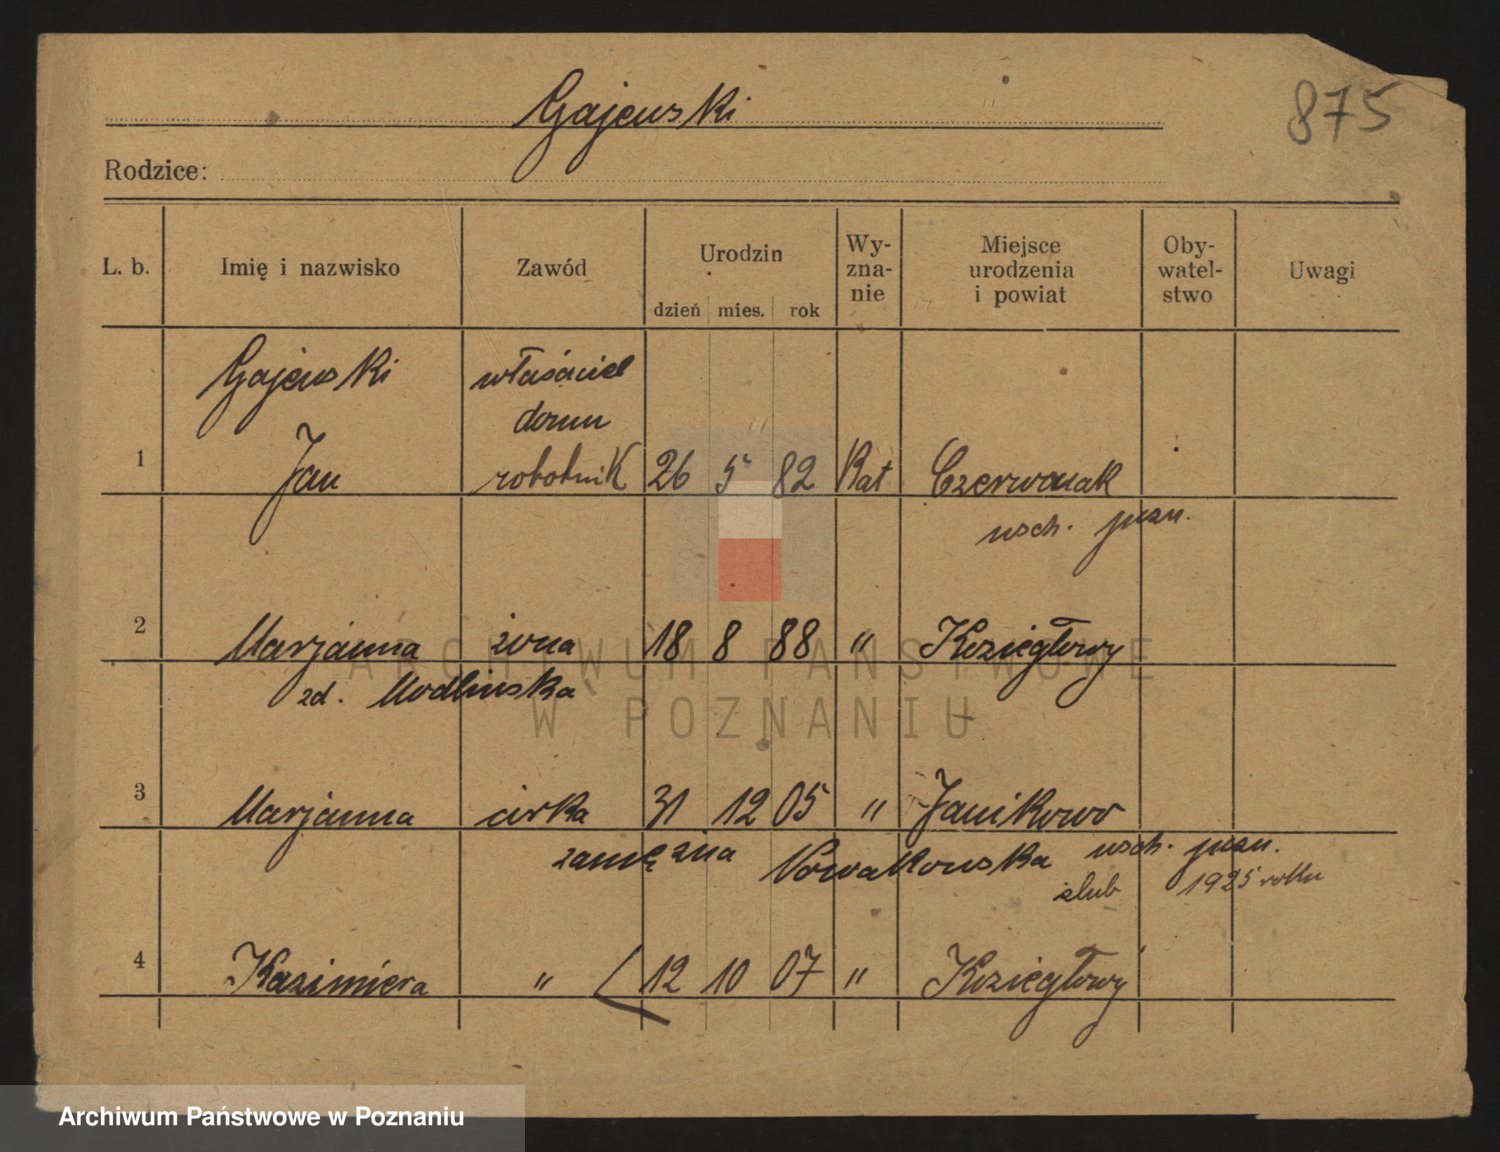 Gajewski
875
Rodzice:
L. b. Imię i nazwisko Zawód Urodzin dzień mies. rok Wy-zna-nie Miejsce urodzenia i powiat Oby-watel-stwo Uwagi
Gajewski właściciel
domu
1 Jan robotnik 26 5 82 Kat Czerwonak
wsch. pozn.
2 Marjanna żona 18 8 88 " Koziegłowy
zd. Modlińska
3 Marjanna córka 31 12 05 " Janikowo
zamężna Nowakowska wsch. pozn.
ślub 1925 roku
4 Kazimiera " 12 10 07 " Koziegłowy
ARCHIWUM PAŃSTWOWE
W POZNANIU
Archiwum Państwowe w Poznaniu